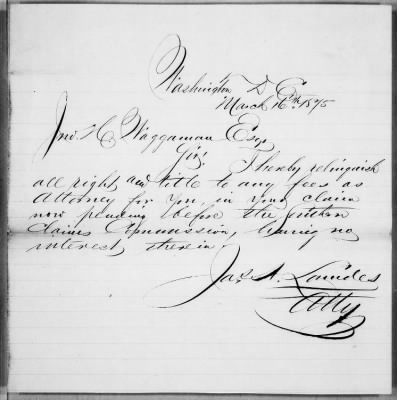 Washington D.C.
March 16th 1875
Jno. H. Waggaman Esq.
Sir, I hereby relinquish
all right and title to any fees as
Attorney for you, in your claim
now pending before the Southern
Claims Commission, having no
interest therein.
Jas. A.
Atty